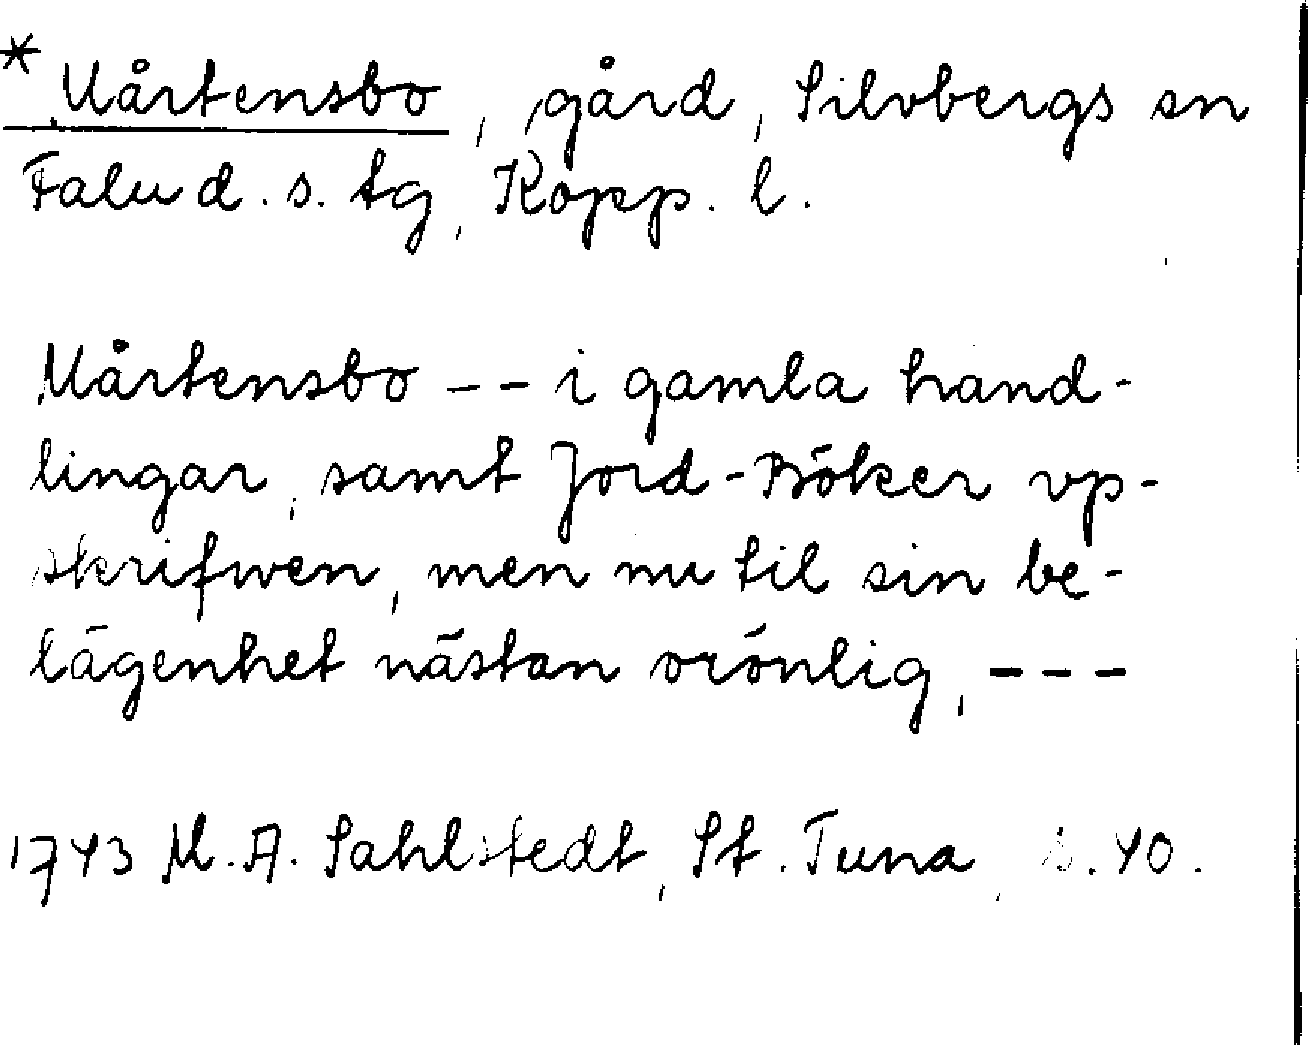 * Mårtensbo, gård, Silvbergs sn
Falu d. s. tg, Kopp. l.
Mårtensbo -- i gamla hand-
lingar, samt Jord-Böker vp-
skrifwen, men nu til sin be-
lägenhet nästan orönlig, ---
1743 M. A. Sahlstedt, St. Tuna, s. 40.